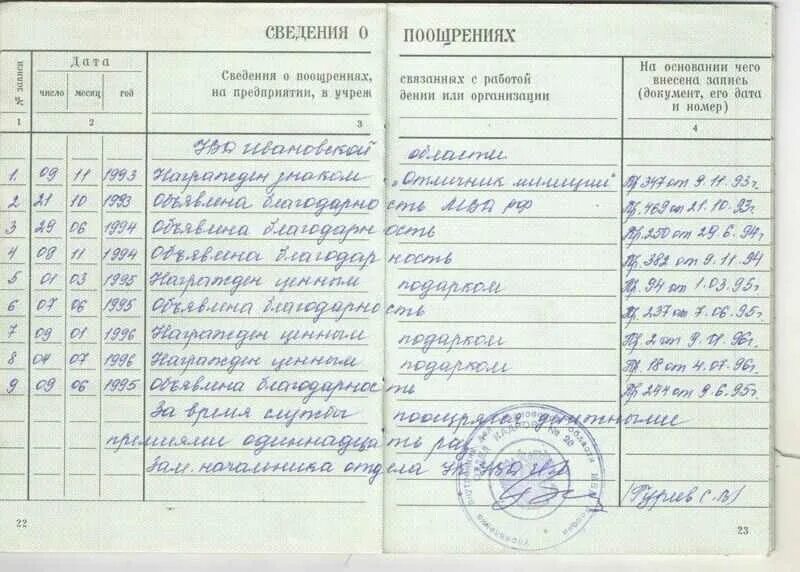 СВЕДЕНИЯ О ПООЩРЕНИЯХ
№ записи
Дата
число месяц год
Сведения о поощрениях, связанных с работой
на предприятии, в учреждении или организации
На основании чего
внесена запись
(документ, его дата
и номер)
1 2 3 4
УВД Ивановской области
1. 09 11 1993 Награжден знаком „Отличник милиции" Пр. 347 от 9.11.93г.
2 21 10 1993 Объявлена благодарность МВД РФ Пр. 469 от 21.10.93г.
3 29 06 1994 Объявлена благодарность Пр. 250 от 29.6.94г
4 09 11 1994 Объявлена благодарность Пр. 382 от 9.11.94
5 01 03 1995 Награжден ценным подарком Пр. 94 от 1.03.95г.
6 07 06 1995 Объявлена благодарность Пр. 237 от 7.06.95г.
7 09 01 1996 Награжден ценным подарком Пр. 2 от 9.01.96г.
8 04 07 1996 Награжден ценным подарком Пр. 18 от 4.07.96г.
9 09 06 1995 Объявлена благодарность Пр 244 от 9.6.95г.
За время службы поощрялся денежными
премиями одиннадцать раз
Зам. начальника отдела УК УВД
(Гуриев С.В)
22
23